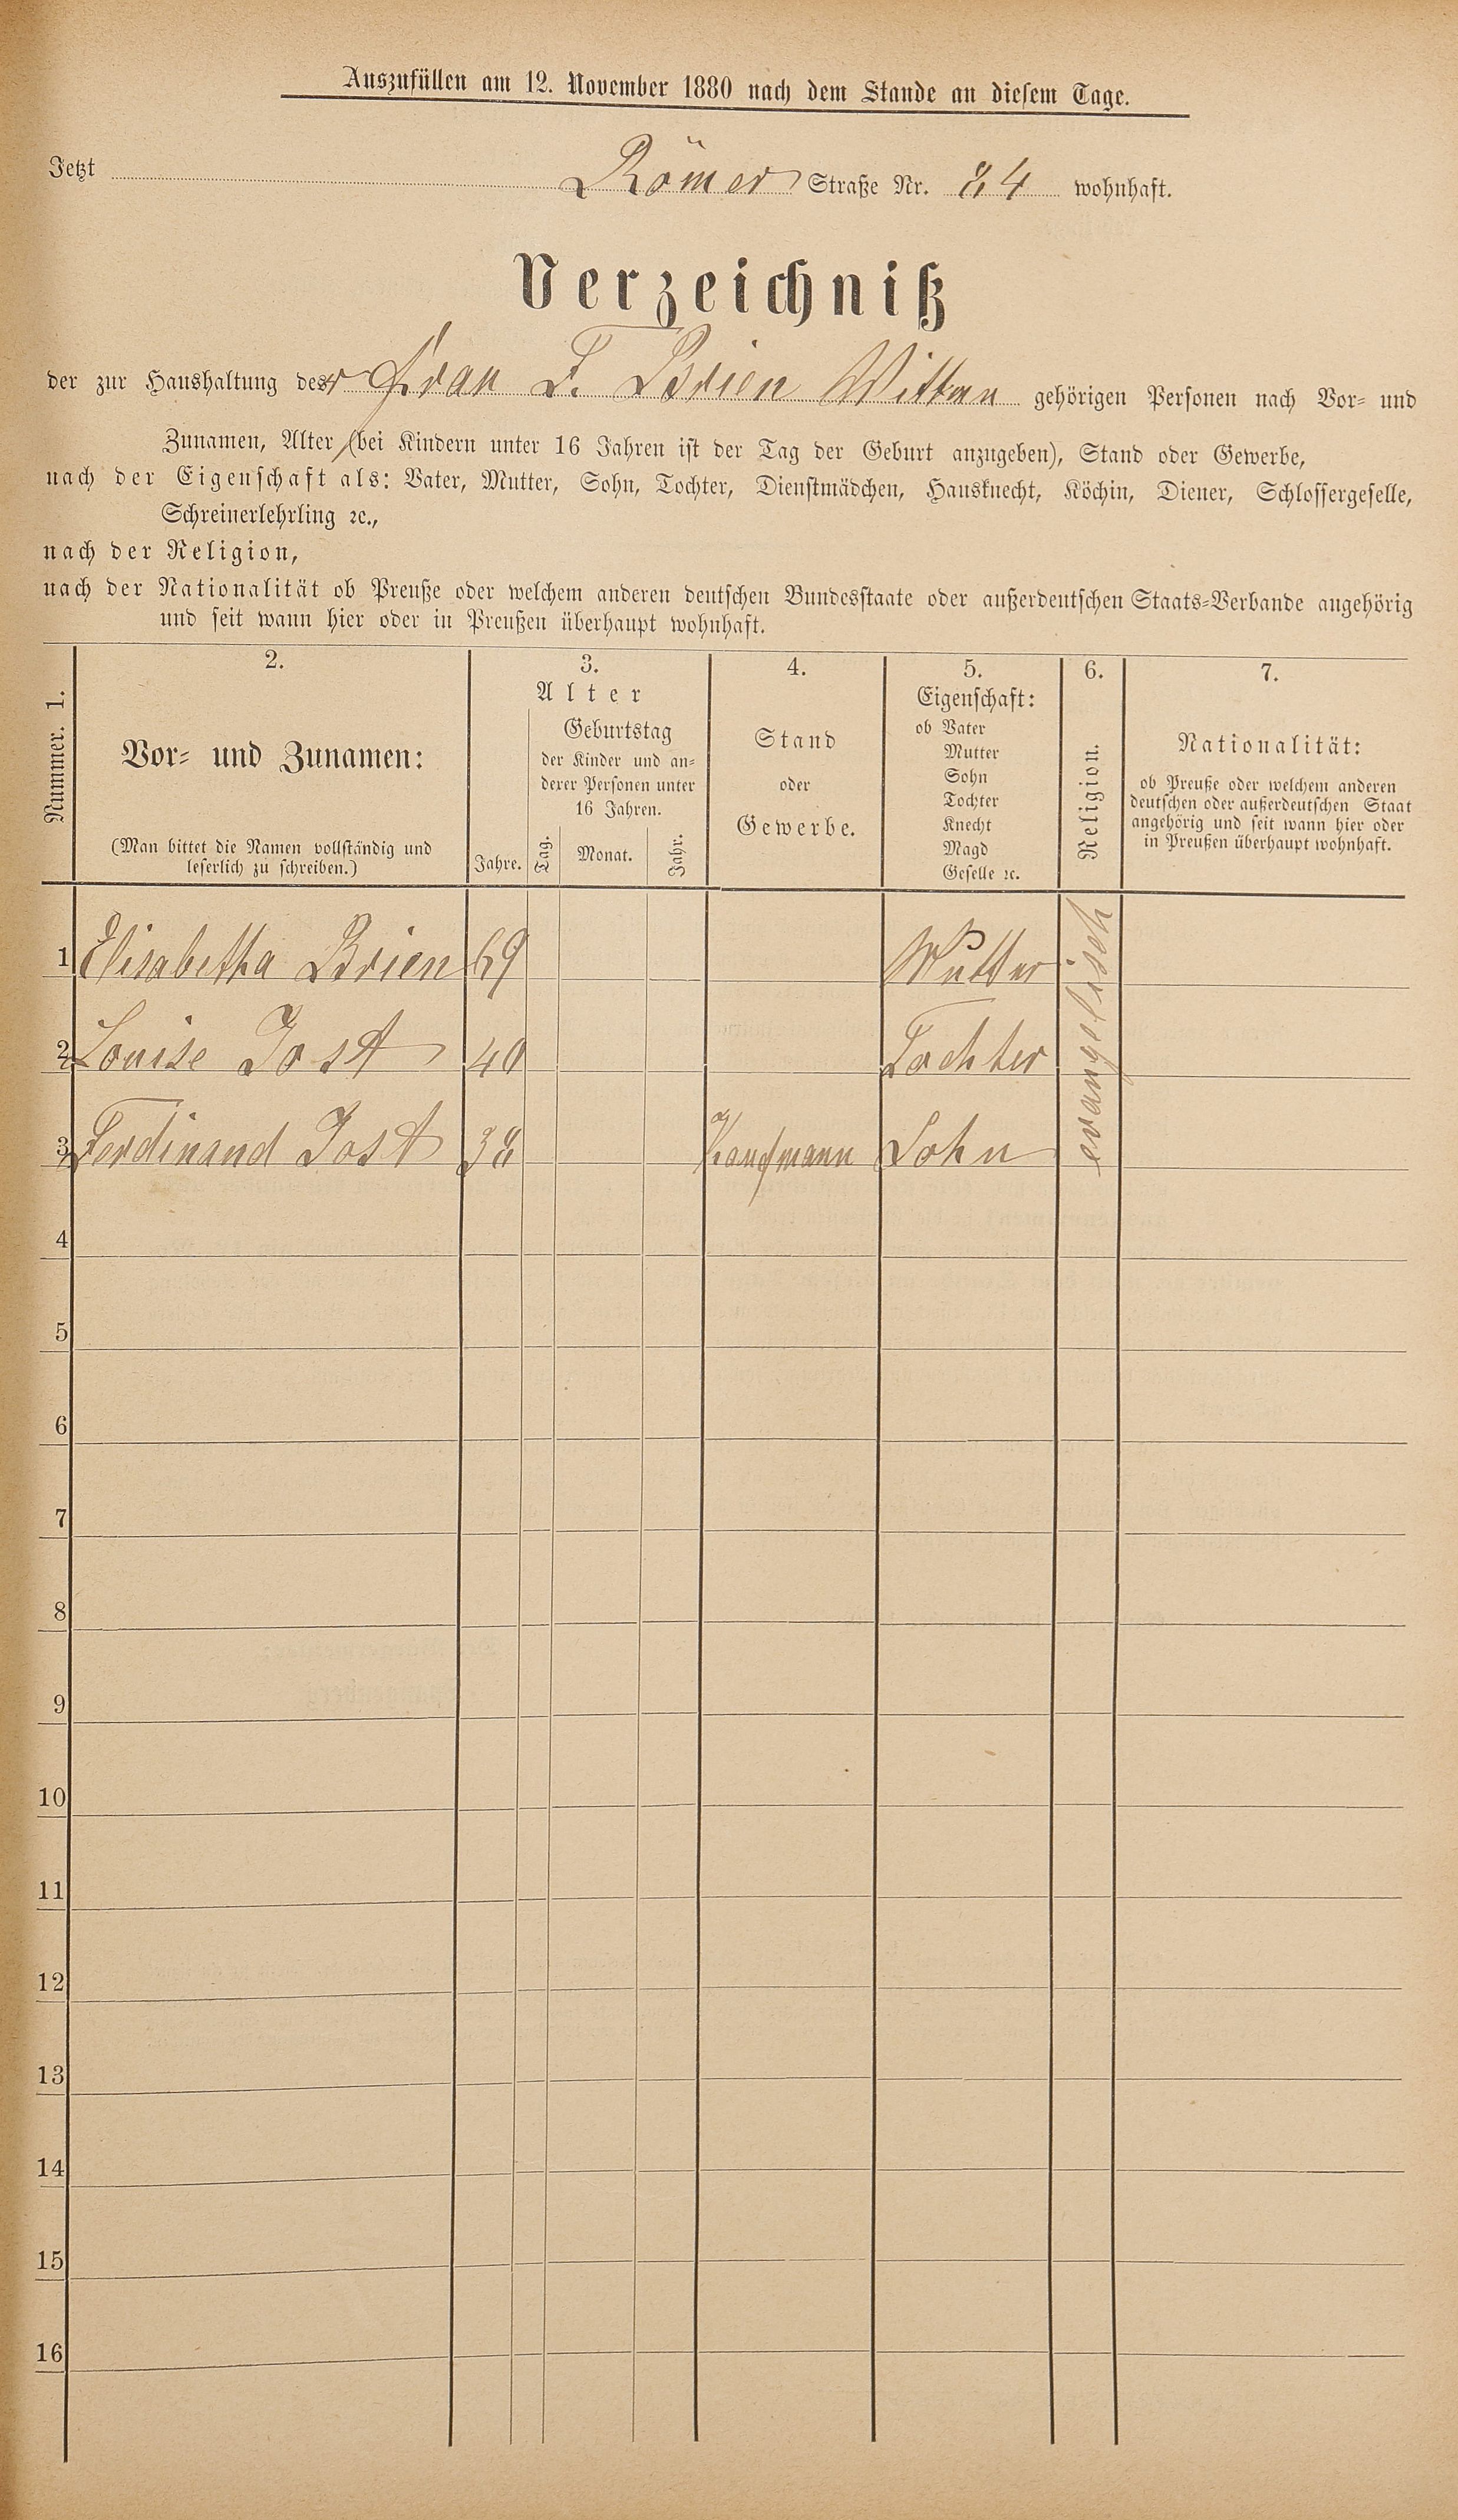 Auszufüllen am 12. November 1880 nach dem Stande an diesem Tage.
Jetzt Römer Straße Nr. 84 wohnhaft.
Verzeichniß
der zur Haushaltung der Frau F. Brien Wittwe gehörigen Personen nach Vor- und
Zunamen, Alter (bei Kindern unter 16 Jahren ist der Tag der Geburt anzugeben), Stand oder Gewerbe,
nach der Eigenschaft als: Vater, Mutter, Sohn, Tochter, Dienstmädchen, Hausknecht, Köchin, Diener, Schlossergeselle,
Schreinerlehrling ꝛc.,
nach der Religion,
nach der Nationalität ob Preuße oder welchem anderen deutschen Bundesstaate oder außerdeutschen Staats-Verbande angehörig
und seit wann hier oder in Preußen überhaupt wohnhaft.
Nummer. 1.
2.
Vor- und Zunamen:
(Man bittet die Namen vollständig und
leserlich zu schreiben.)
3.
Alter
Jahre.
Geburtstag
der Kinder und an-
derer Personen unter
16 Jahren.
Tag. Monat. Jahr.
4.
Stand
oder
Gewerbe.
5.
Eigenschaft:
ob Vater
Mutter
Sohn
Tochter
Knecht
Magd
Geselle ꝛc.
6.
Religion.
7.
Nationalität:
ob Preuße oder welchem anderen
deutschen oder außerdeutschen Staat
angehörig und seit wann hier oder
in Preußen überhaupt wohnhaft.
1 Elisabetha Brien 69 Mutter evangelisch
2 Louise Jost 40 Tochter
3 Ferdinand Jost 38 Kaufmann Sohn
4
5
6
7
8
9
10
11
12
13
14
15
16